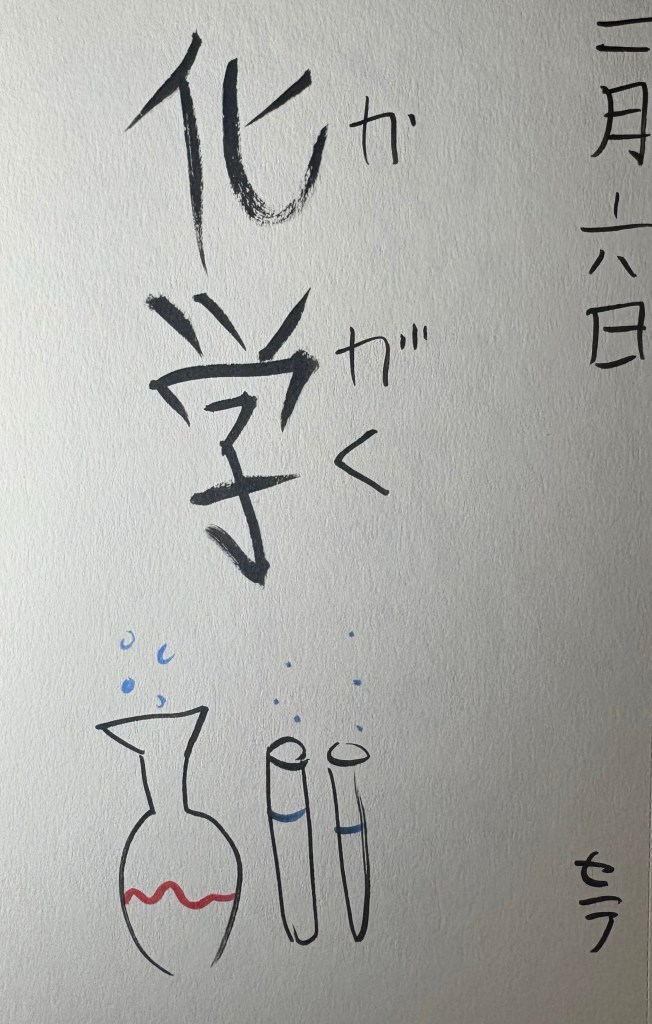 二月六日
セラ
化学
か
がく